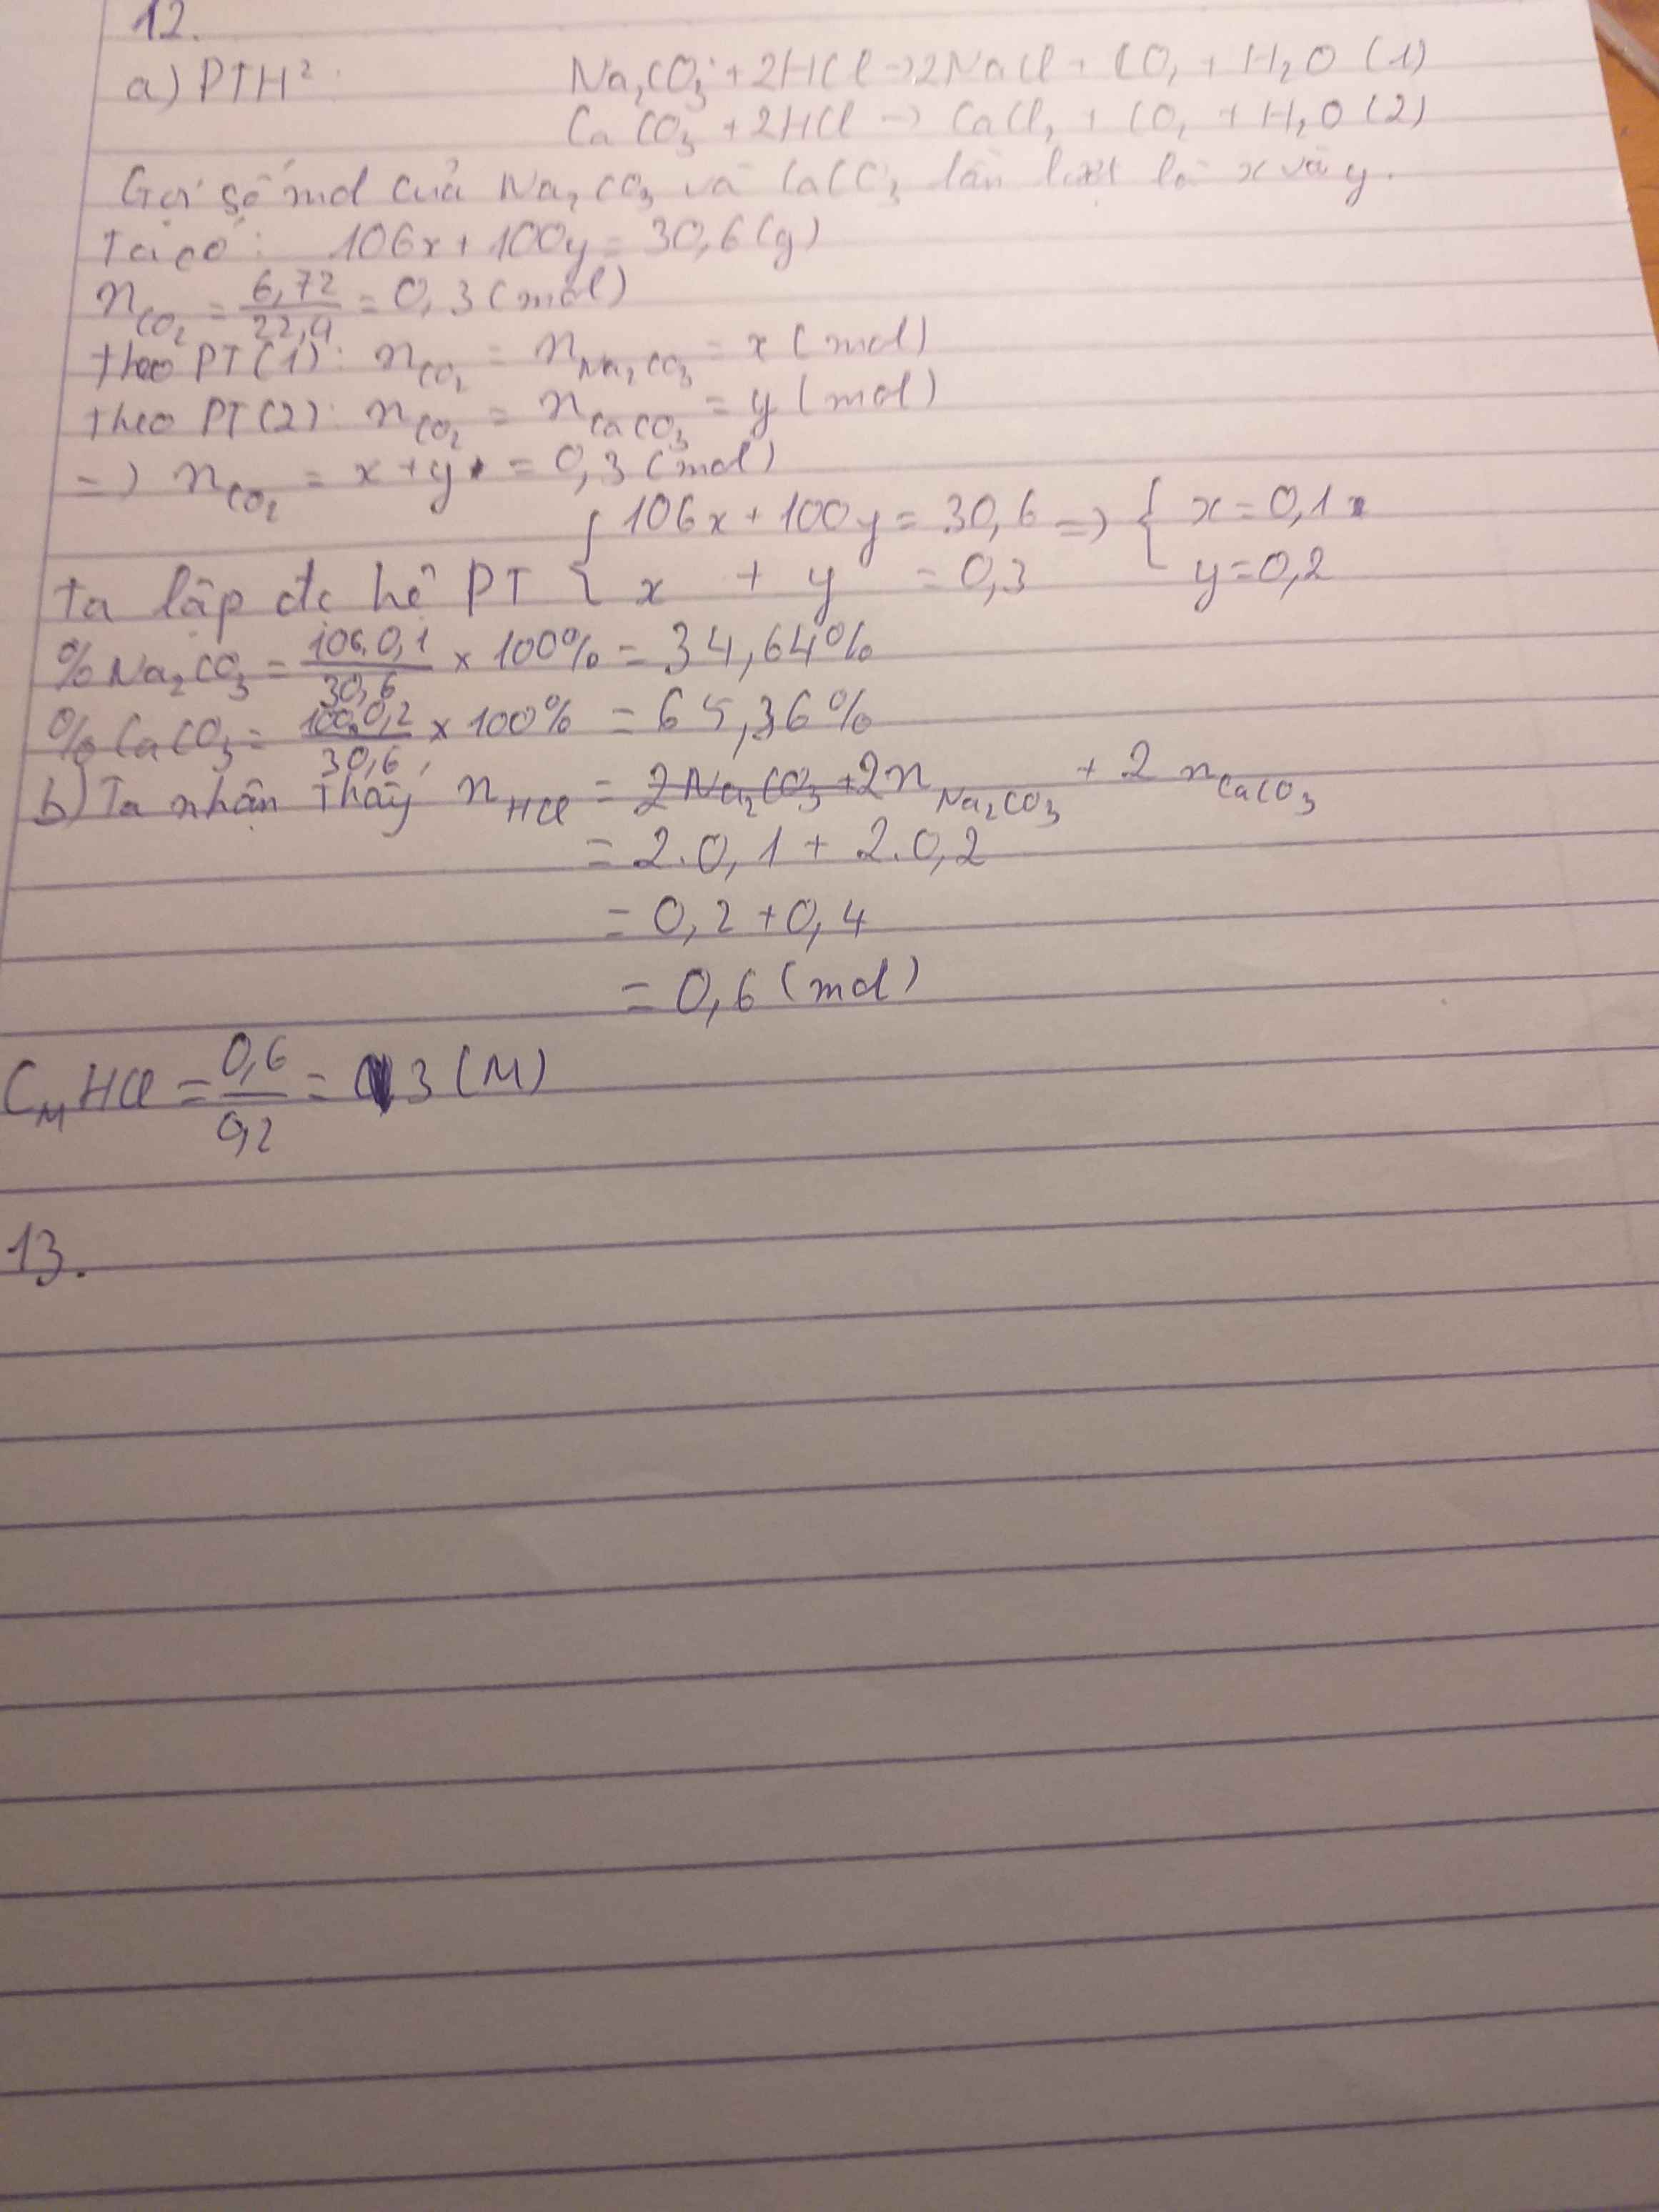 12.
a) PTH²: Na₂CO₃ + 2HCl → 2NaCl + CO₂ + H₂O (1)
CaCO₃ + 2HCl → CaCl₂ + CO₂ + H₂O (2)
Gọi số mol của Na₂CO₃ và CaCO₃ lần lượt là x và y.
Ta có: 106x + 100y = 30,6 (g)
n_CO₂ = 6,72/22,4 = 0,3 (mol)
theo PT (1): n_CO₂ = n_Na₂CO₃ = x (mol)
theo PT (2): n_CO₂ = n_CaCO₃ = y (mol)
=> n_CO₂ = x + y = 0,3 (mol)
Ta lập đc hệ PT { 106x + 100y = 30,6 => { x = 0,1
x + y = 0,3 y = 0,2
% Na₂CO₃ = 106.0,1/30,6 x 100% = 34,64%
% CaCO₃ = 100.0,2/30,6 x 100% = 65,36%
b) Ta nhận thấy n_HCl = 2Na₂CO₃ + 2n_Na₂CO₃ + 2n_CaCO₃
= 2.0,1 + 2.0,2
= 0,2 + 0,4
= 0,6 (mol)
C_M HCl = 0,6/0,2 = 3 (M)
13.